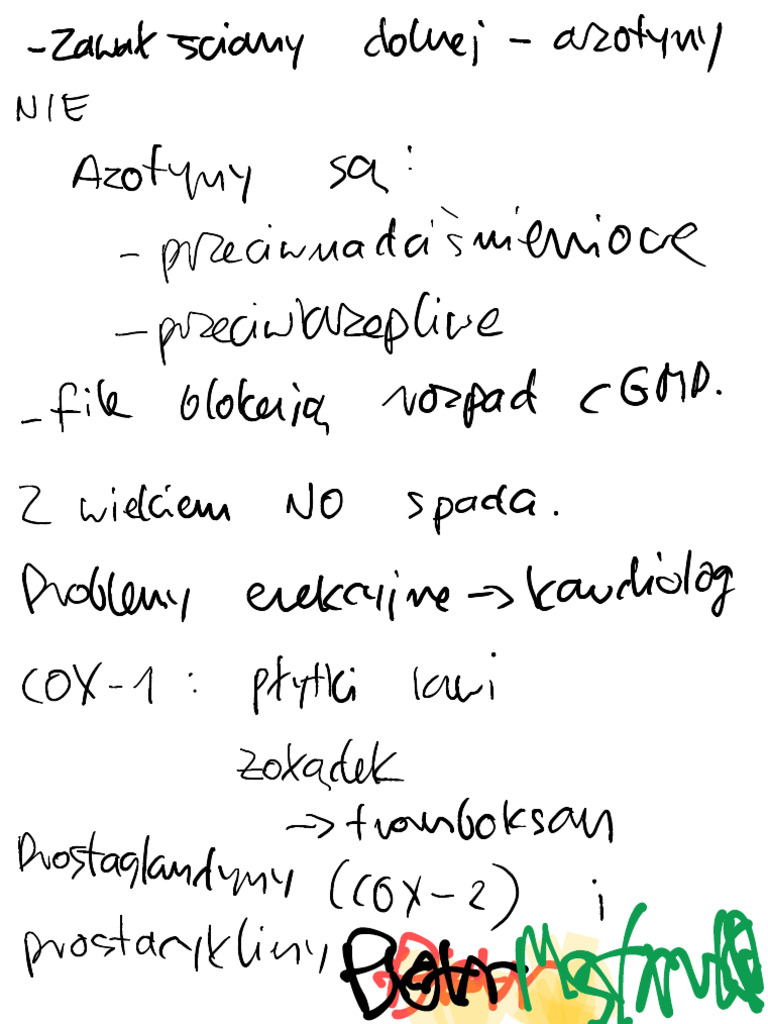 - Zawał ściany dolnej - azotyny
NIE
Azotyny są:
- przeciwnadciśnieniowe
- przeciwkrzepliwe
- file blokują rozpad cGMP.
Z wiekiem NO spada.
Problemy erekcyjne → kardiolog
COX-1: płytki krwi
żołądek
→ tromboksan
Prostaglandyny (COX-2) i
prostacykliny